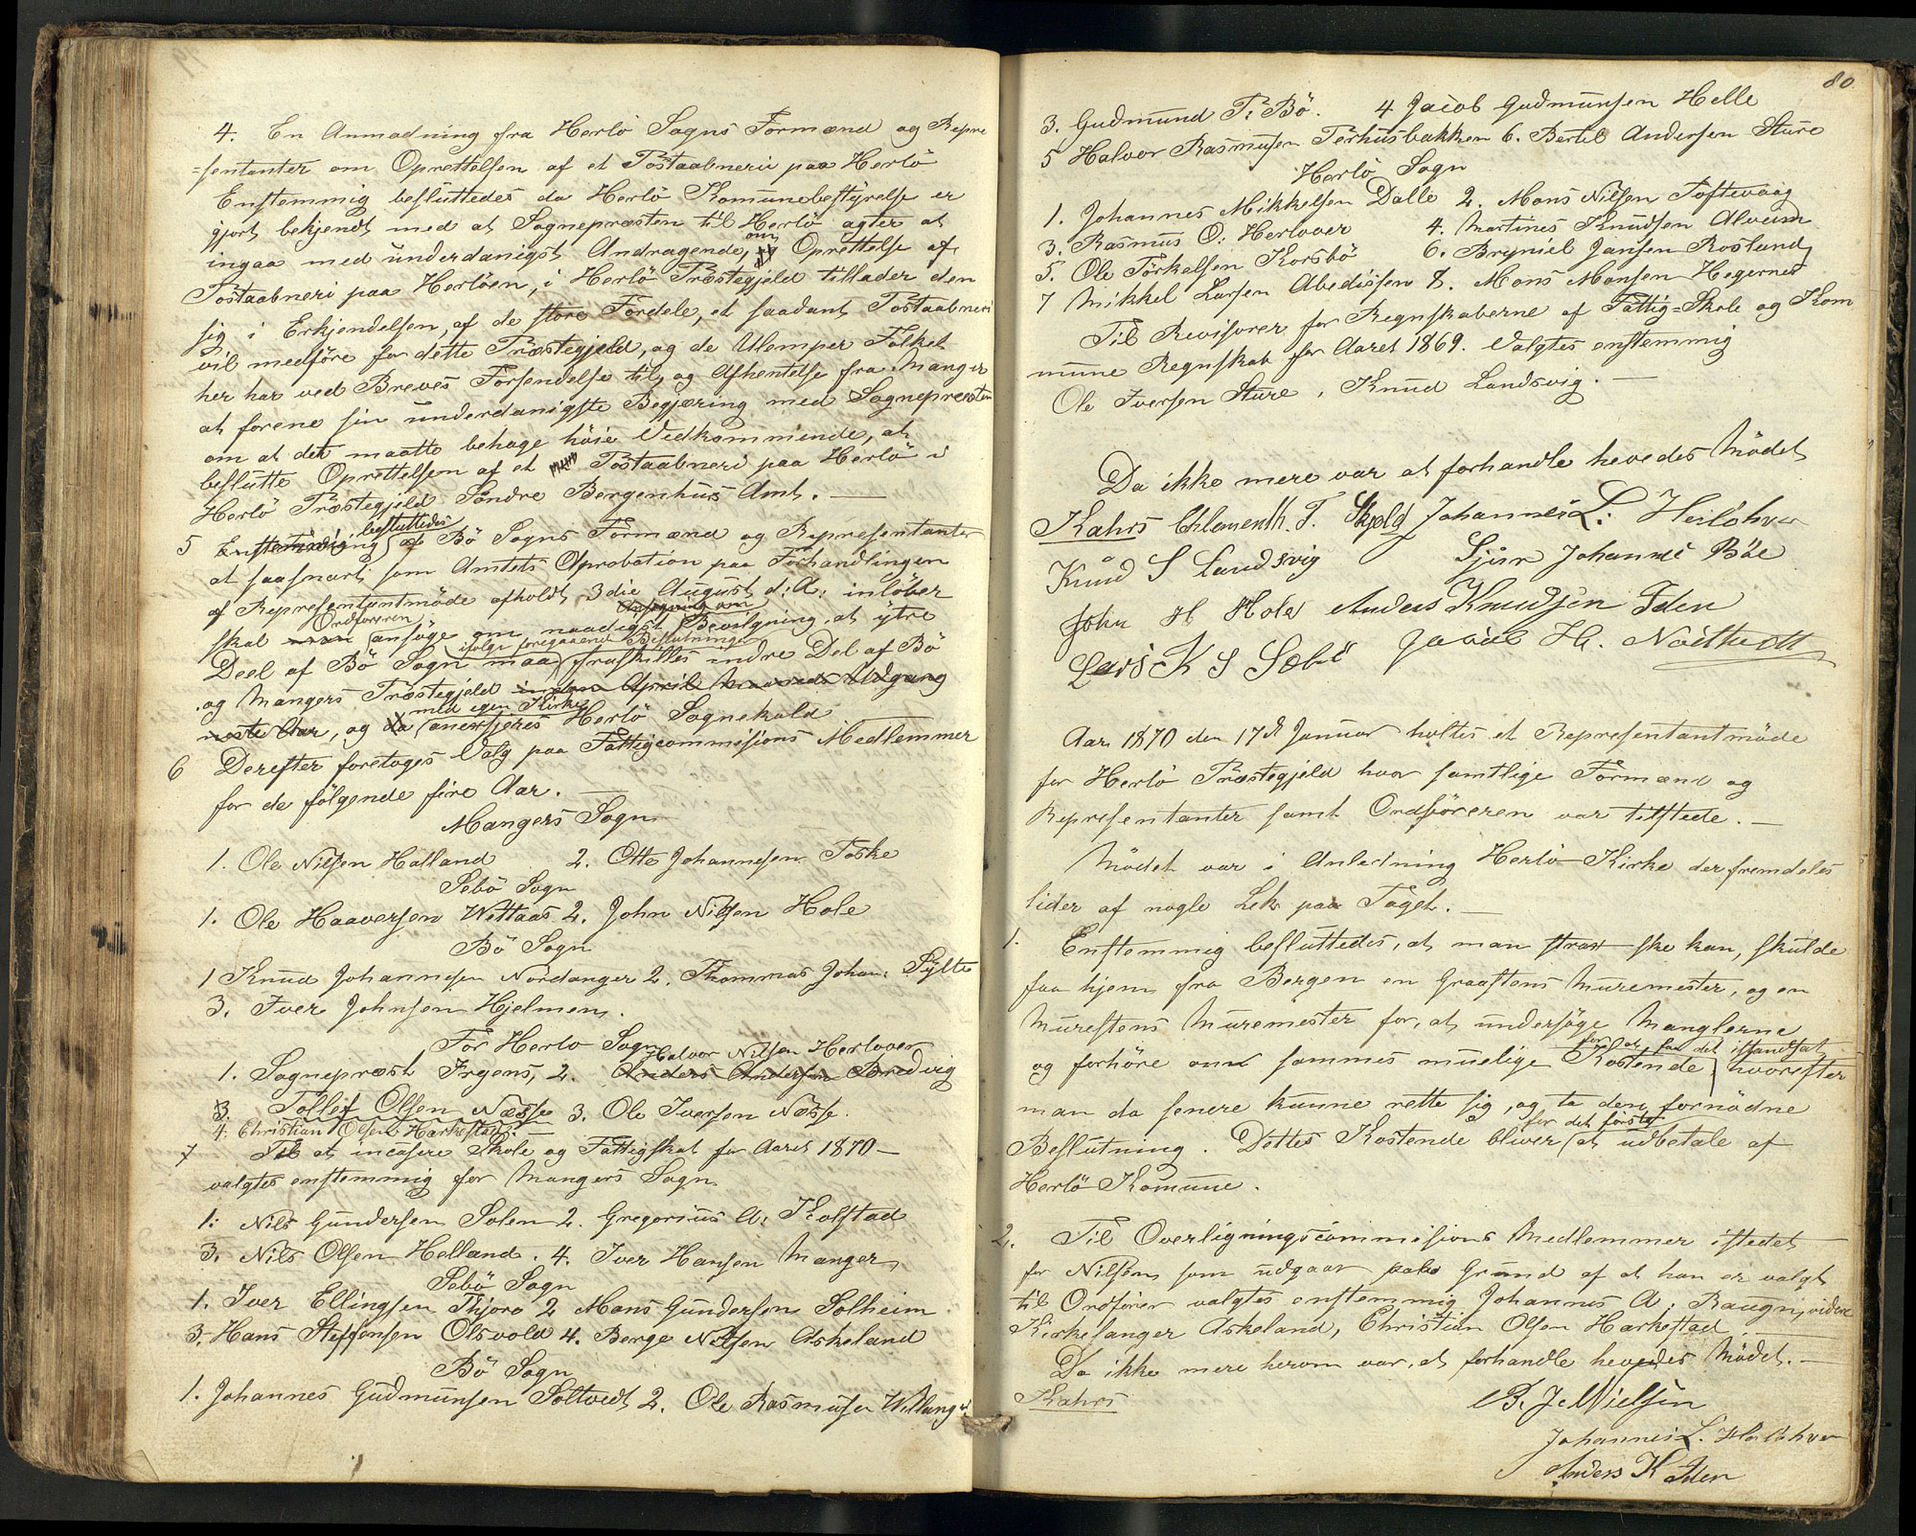 4. En Anmodning fra Herlö Sogns Formænd og Repre
=sentanter om Oprettelsen af et Postaabneri paa Herlö
Enstemmig besluttedes da Herlö Komunebestyrelse er
gjort bekjendt med at Sognepræsten til Herlö agter at
ingaa med underdanigst Andragende, om Oprettelse af
Postaabneri paa Herlöen, i Herlö Præstegjeld tillader den
sig i Erkjendelsen, af de store Fordele, et saadant Postaabneri
vil medföre for dette Præstegjeld, og de Ulemper Folket
her har ved Breves Forsendelse til, og Afhentelse fra Manger
at forene sin underdanigste Begjæring med Sognepresten
om at det maatte behage höie Vedkommende, at
beslutte Oprettelsen af et Postaabneri paa Herlö i
Herlö Præstegjeld Söndre Bergenhus Amt. —
besluttedes
5 Enstemmig af Bö Sogns Formænd og Representanter
at saasnart som Amtets Aprobation paa Forhandlingen
af Representantmöde afholdt 3die August d: A: inlöber
Ordföreren Ansögning om
skal ansöge om naadigst Bevilgning at ytre
ifölge foregaaend Beslutning
Deel af Bö Sogn maa fraskilles indre Del af Bö
og Mangers Præstegjeld inden April Maaneds Udgang
med egen Kirke
neste Aar, og da anerkjenes Herlö Sognekald
6 Derefter foretoges Valg paa Fattigcommisions Medlemmer
for de fölgende fire Aar. —
Mangers Sogn
1. Ole Nilsen Halland 2. Otto Johannesen Toska
Sebö Sogn
1. Ole Haaversen Wettaas 2. John Nilsen Hole
Bö Sogn
1 Knud Johannesen Nordanger 2. Thommas Johan: Sylte
3. Iver Johnsen Hjelmen.
For Herlo Sogn
Halvor Nilsen Herlover
1. Sogneprest Irgens, 2. Anders Andersen Bredvig
3. Tollef Olsen Næsse 3. Ole Iversen Næsse.
4. Christian Olsen Harkestad.
7 Til at incasere Skole og Fattigskat for Aaret 1870 —
valgtes enstemmig for Mangers Sogn
1: Nils Gundersen Solen 2. Gregorius A: Kolstad
3. Nils Olsen Helland. 4. Iver Hansen Manger
Sebö Sogn
1. Iver Ellingsen Thjore 2 Mons Gundersen Solheim
3. Hans Steffensen Olsvold 4. Berge Nilsen Askeland
Bö Sogn
1. Johannes Gudmunsen Soltvedt 2. Ole Rasmusen Willanger
80
3. Gudmund P: Bö. 4 Jacob Gudmunsen Helle
5 Halvor Rasmusen Torhusbakken 6. Bertel Andersen Sture
Herlö Sogn
1. Johannes Mikkelsen Dalle 2. Mons Nilsen Toftevaag
3. Rasmus O: Herlover 4. Martines Knudsen Alvum
5. Ole Törkelsen Korsbö 6. Bryniel Jansen Rosland
7 Mikkel Larsen Abedissen 8. Mons Monsen Hegernes
Til Revisorer for Regnskaberne af Fattig=Skole og Kom
mune Regnskab for Aaret 1869. Valgtes enstemmig
Ole Iversen Sture, Knud Landsvig. —
Da ikke mere var at forhandle hevedes Mödet
Kahrs Chlementh. T. Skjold Johannes L: Herlöhver
Knud S Landsvig Sjur Johannes Böe
John H Hole Anders Knudsen Iden
Lars K S Sæbö Jacob H. Nottvedt
Aar 1870 den 17de Januar holtes et Representantmöde
for Herlö Præstegjeld hvor samtlige Formænd og
Representanter samt Ordföreren var tilstede. —
Mödet var i Anledning Herlö Kirke der fremdeles
lider af nogle Lek paa Taget. —
1. Enstemmig besluttedes, at man strax ske kan, skulde
faa hjem fra Bergen en Graastens Muremester, og en
Murestens Muremester for, at undersöge Manglerne
for at faa det istandsat
og forhöre om sammes muelige Kostende hvorefter
man da senere kunne rette sig, og ta den fornödne
for det förste
Beslutning. Dettes Kostende bliver at udbetale af
Herlö Komune.
2. Til Overligningscommisions Medlemmer istedet
for Nilsen som udgaar paa Grund af at han er valgt
til Ordförer valgtes enstemmig Johannes A. Raugn, videre
Kirkesanger Askeland, Christian Olsen Harkestad
Da ikke mere herom var, at forhandle hevedes Mödet. —
Kahrs B. J. Nielsen
Johannes L. Herlöhver
Anders K Iden